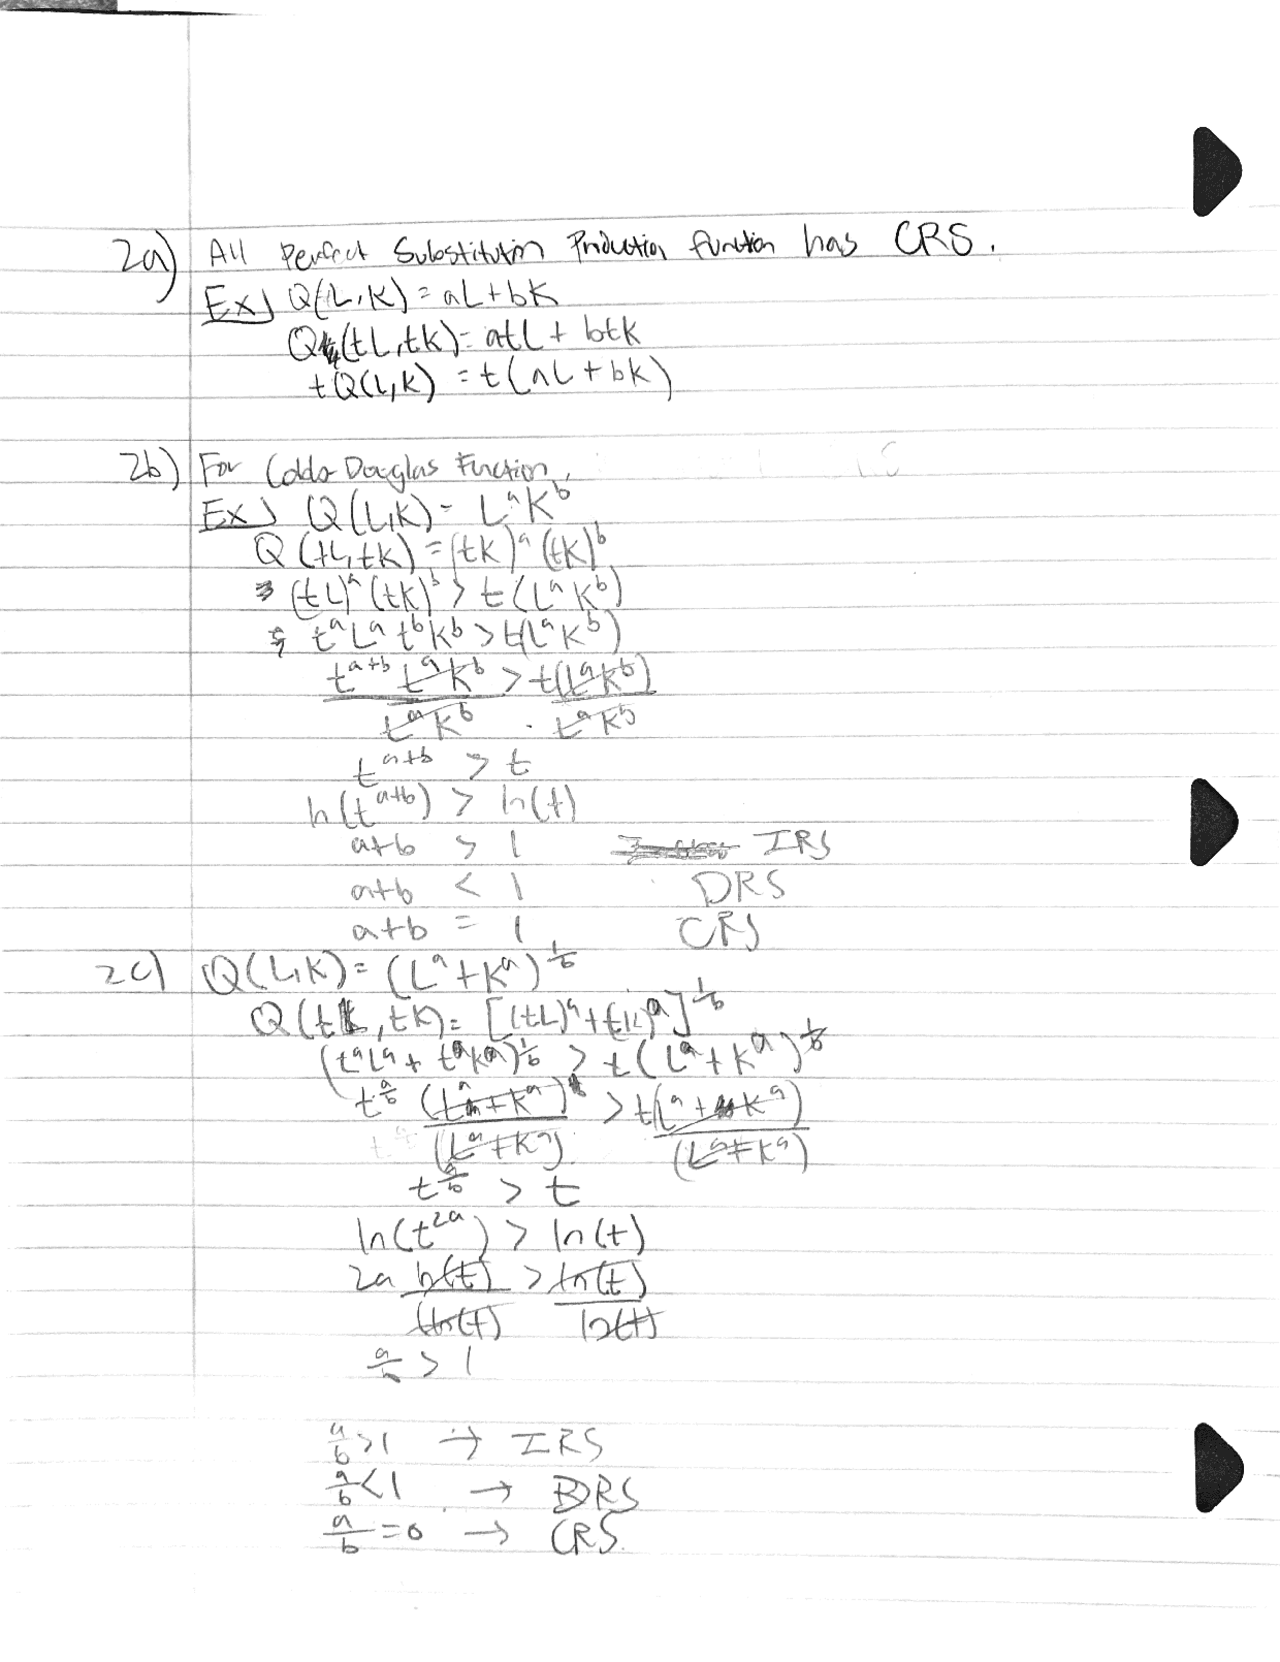 2a) All Perfect Substitution Production function has CRS.
Ex) Q(L,K) = aL+bK
Q(tL,tK) = atL + btK
tQ(L,K) = t(aL+bK)
2b) For Cobb-Douglas Function,
Ex) Q(L,K) = L^a K^b
Q(tL,tK) = (tK)^a (tK)^b
(tL)^a (tK)^b > t(L^a K^b)
t^a L^a t^b K^b > t(L^a K^b)
t^{a+b} L^a K^b > t(L^a K^b)
L^a K^b L^a K^b
t^{a+b} > t
ln(t^{a+b}) > ln(t)
a+b > 1 IRS
a+b < 1 DRS
a+b = 1 CRS
2c) Q(L,K) = (L^a + K^a)^{1/b}
Q(tL, tK) = [(tL)^a + (tK)^a]^{1/b}
(t^a L^a + t^a K^a)^{1/b} > t(L^a + K^a)^{1/b}
t^{a/b} (L^a + K^a) > t(L^a + K^a)
(L^a + K^a) (L^a + K^a)
t^{a/b} > t
ln(t^{2a}) > ln(t)
2a ln(t) > ln(t)
ln(t) ln(t)
a/b > 1
a/b > 1 → IRS
a/b < 1 → DRS
a/b = 0 → CRS.